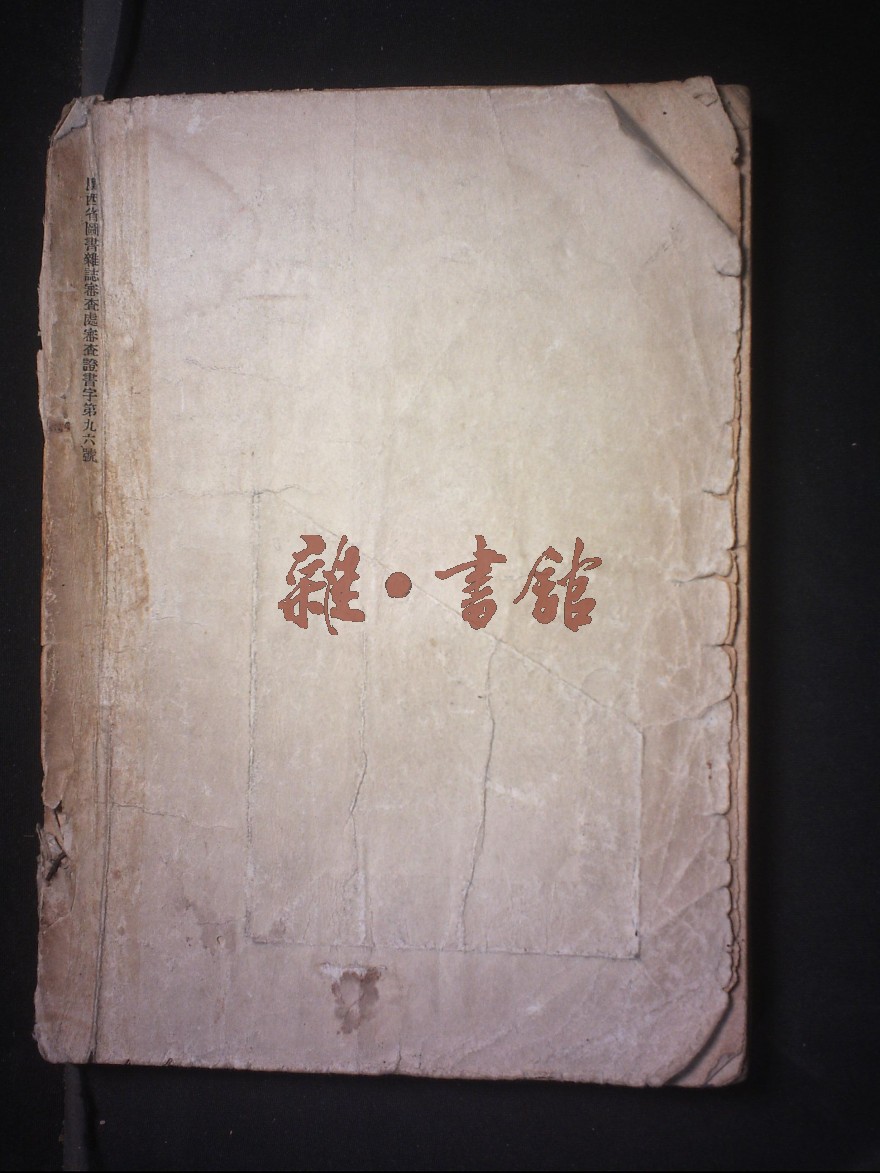 西省圖書雜誌審查處審查證書字第九六號
雜·書館